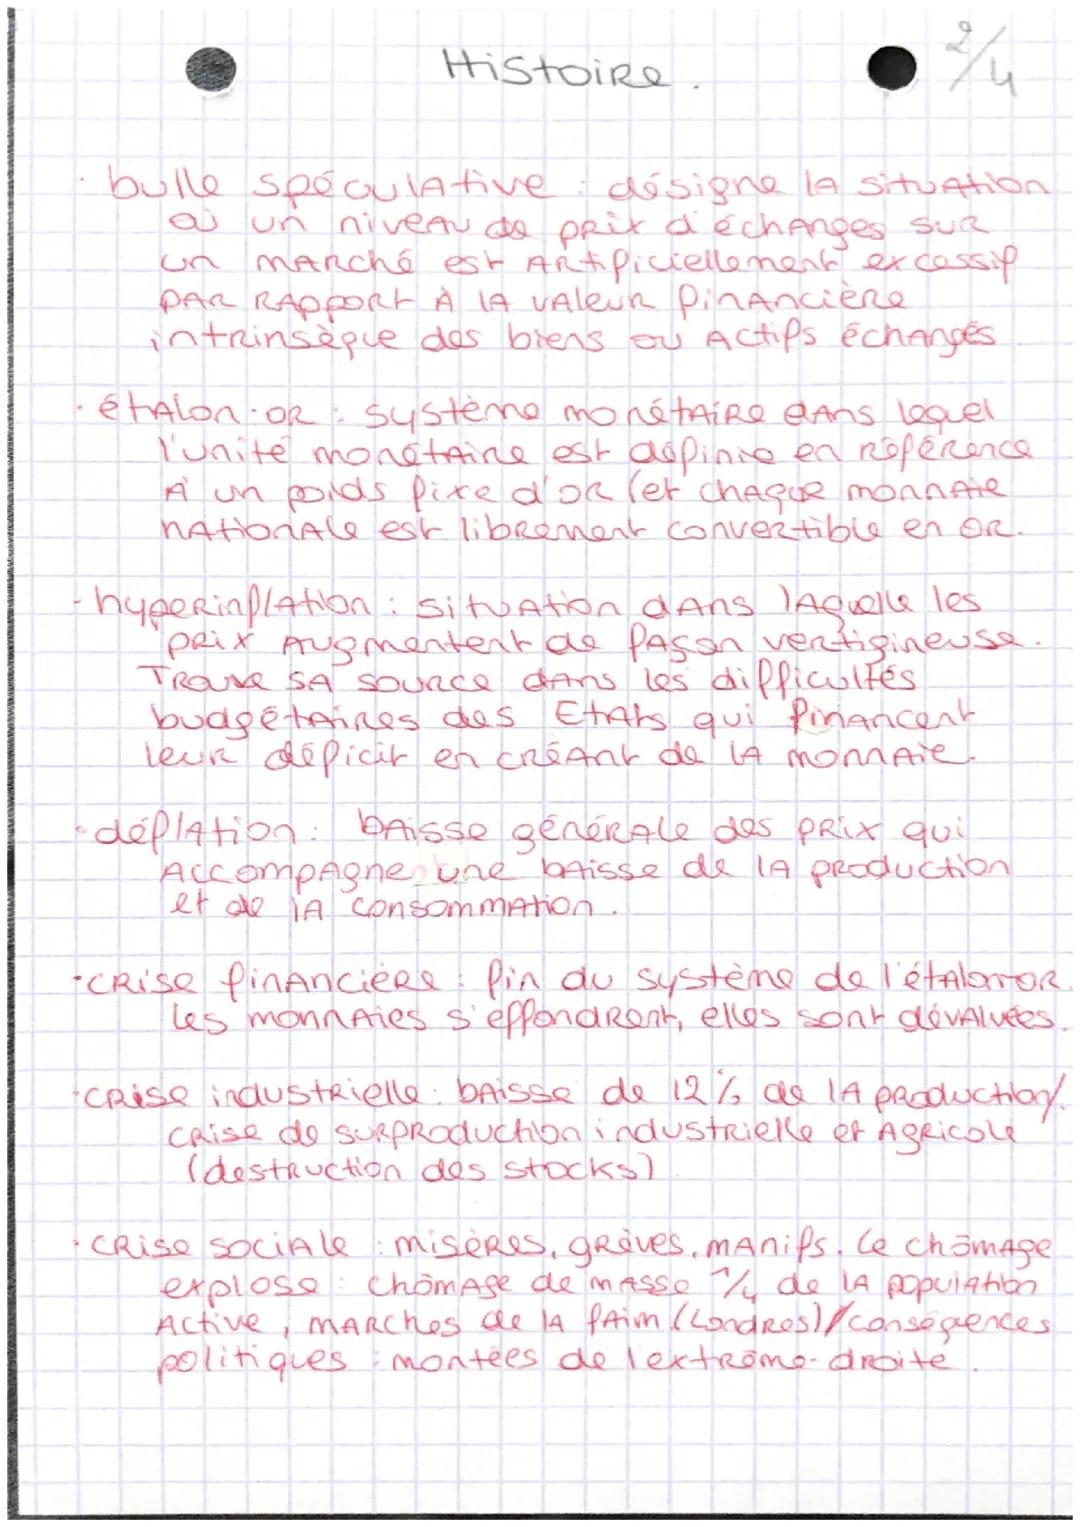 Histoire.
2/4
· bulle spéculative : désigne la situation
où un niveau de prix d'échanges sur
un marché est artificiellement excessif
par rapport à la valeur financière
intrinsèque des biens ou actifs échangés.
· étalon-or : système monétaire dans lequel
l'unité monétaire est définie en référence
à un poids fixe d'or (et chaque monnaie
nationale est librement convertible en or.
· hyperinflation : situation dans laquelle les
prix augmentent de façon vertigineuse.
Trouve sa source dans les difficultés
budgétaires des Etats qui financent
leur déficit en créant de la monnaie.
· déflation : baisse générale des prix qui
accompagne une baisse de la production
et de la consommation.
· crise financière : fin du système de l'étalon-or.
Les monnaies s'effondrent, elles sont dévaluées.
· crise industrielle : baisse de 12% de la production/.
crise de surproduction industrielle et agricole
(destruction des stocks)
· crise sociale : misères, grèves, manifs. Le chômage
explose : chômage de masse 1/4 de la population
active, marches de la faim (Londres)/conséquences
politiques : montées de l'extrême-droite.